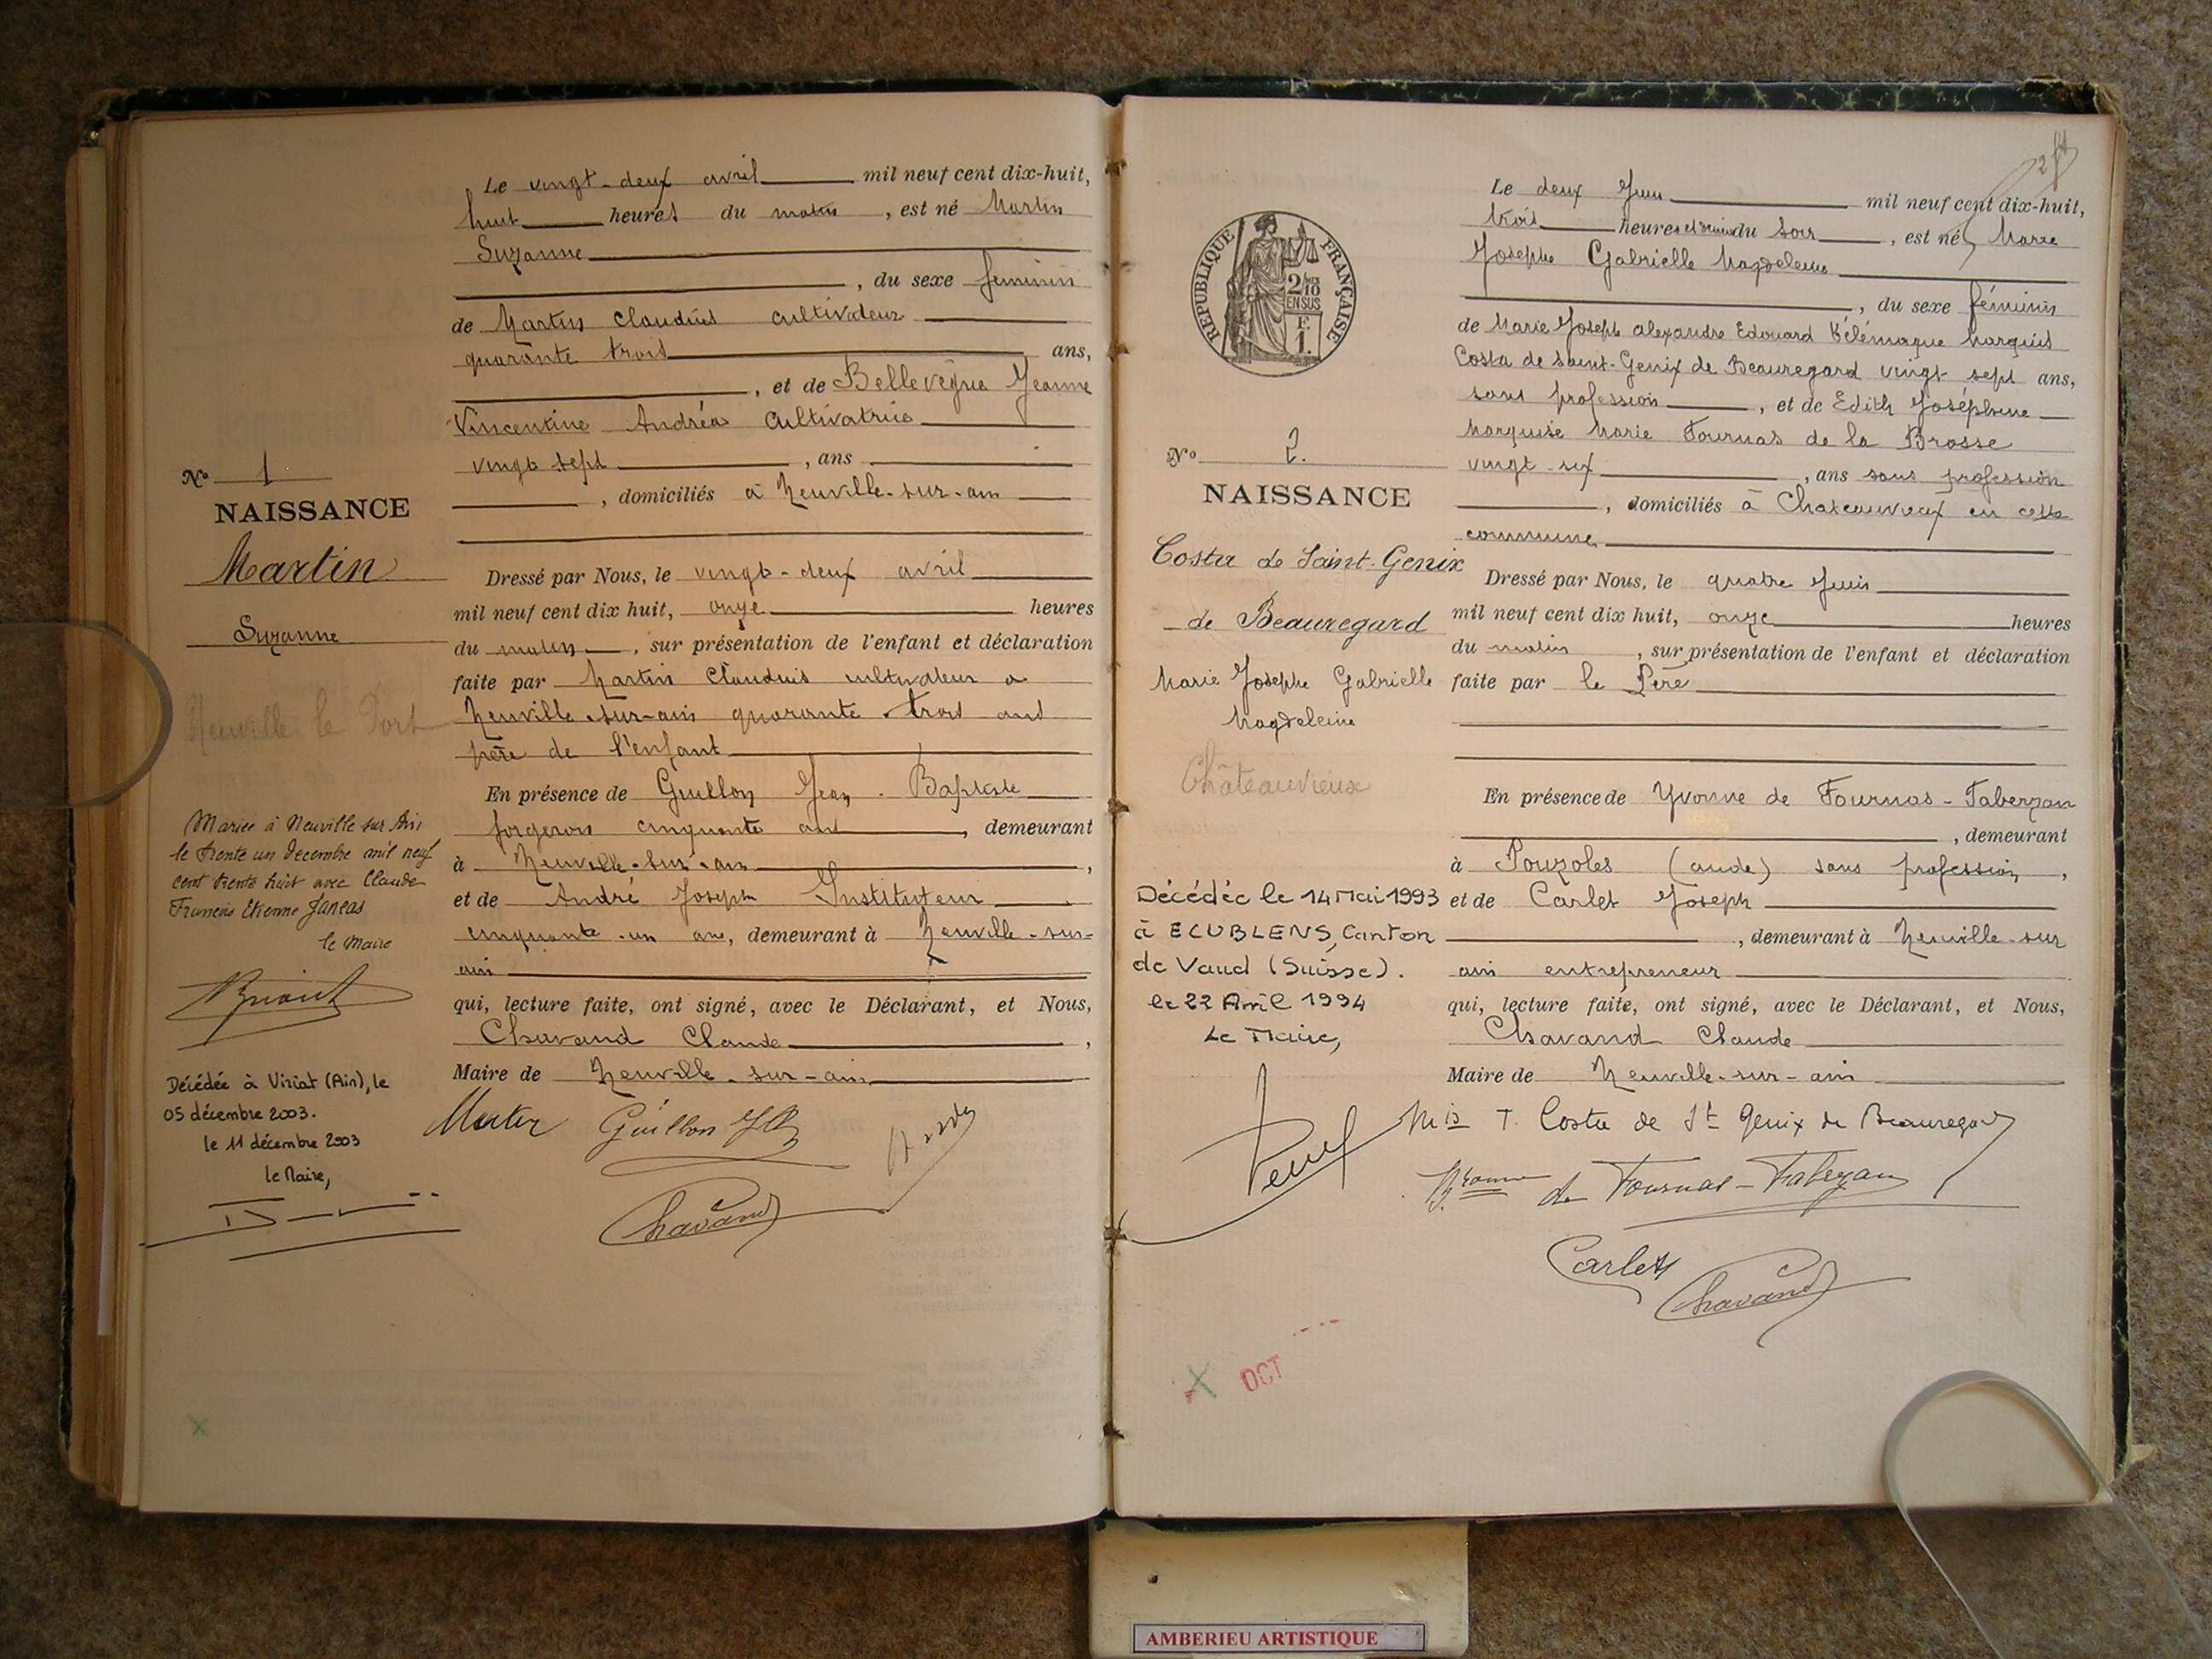 Le vingt-deux avril mil neuf cent dix-huit,
huit heures du matin, est né Martin
Suzanne
, du sexe feminin
de Martin Claudius cultivateur
quarante trois ans,
, et de Bellevègue Jeanne
Vincentine Andréa Cultivatrice
vingt sept, ans
, domiciliés à Neuville-sur-ain
N° 1
NAISSANCE
Martin
Suzanne
Neuville le Port
Dressé par Nous, le vingt-deux avril
mil neuf cent dix huit, onze heures
du matin, sur présentation de l'enfant et déclaration
faite par Martin Claudius cultivateur a
Neuville-sur-ain quarante trois ans
père de l'enfant
En présence de Guillon Jean-Baptiste
forgeron cinquante ans, demeurant
à Neuville-sur-ain,
et de André Joseph Instituteur
cinquante-un ans, demeurant à Neuville-sur-
ain
qui, lecture faite, ont signé, avec le Déclarant, et Nous,
Chavand Claude,
Maire de Neuville-sur-ain
Guillon JB
Chavand
Mariée à Neuville sur Ain
le trente un Decembre mil neuf
cent trente huit avec Claude
François Etienne Janeas
le Maire
Décédée à Viriat (Ain), le
05 décembre 2003.
le 11 décembre 2003
le Maire,
2ft
RÉPUBLIQUE FRANÇAISE
2/10
EN SUS
F.
1.
Le deux Juin mil neuf cent dix-huit,
trois heures et demie du soir, est né Marie
Josephe Gabrielle Magdeleine
, du sexe féminin
de Marie Joseph alexandre Edouard Télémaque Marquis
Costa de Saint-Genix de Beauregard vingt sept ans,
sans profession, et de Edith Joséphine
Marquise Marie Fournas de la Brosse
vingt-six, ans sans profession
, domiciliés à Chateauvieux en cette
commune
N° 2.
NAISSANCE
Costa de Saint-Genix
de Beauregard
Marie Josephe Gabrielle
Magdeleine
Châteauvieux
Dressé par Nous, le quatre Juin
mil neuf cent dix huit, onze heures
du matin, sur présentation de l'enfant et déclaration
faite par le Père
En présence de Yvonne de Fournas-Faberzan
, demeurant
à Pouzoles (aude) sans profession,
et de Carlet Joseph
, demeurant à Neuville-sur
ain entrepreneur
qui, lecture faite, ont signé, avec le Déclarant, et Nous,
Chavand Claude
Maire de Neuville-sur-ain
Mis T. Costa de St Genix de Beauregard
Bronne de Fournas-Fabrezan
Carlet
Chavand
Décédée le 14 Mai 1993
à ECUBLENS, Canton
de Vaud (Suisse).
le 22 Avril 1994
Le Maire,
OCT
AMBERIEU ARTISTIQUE